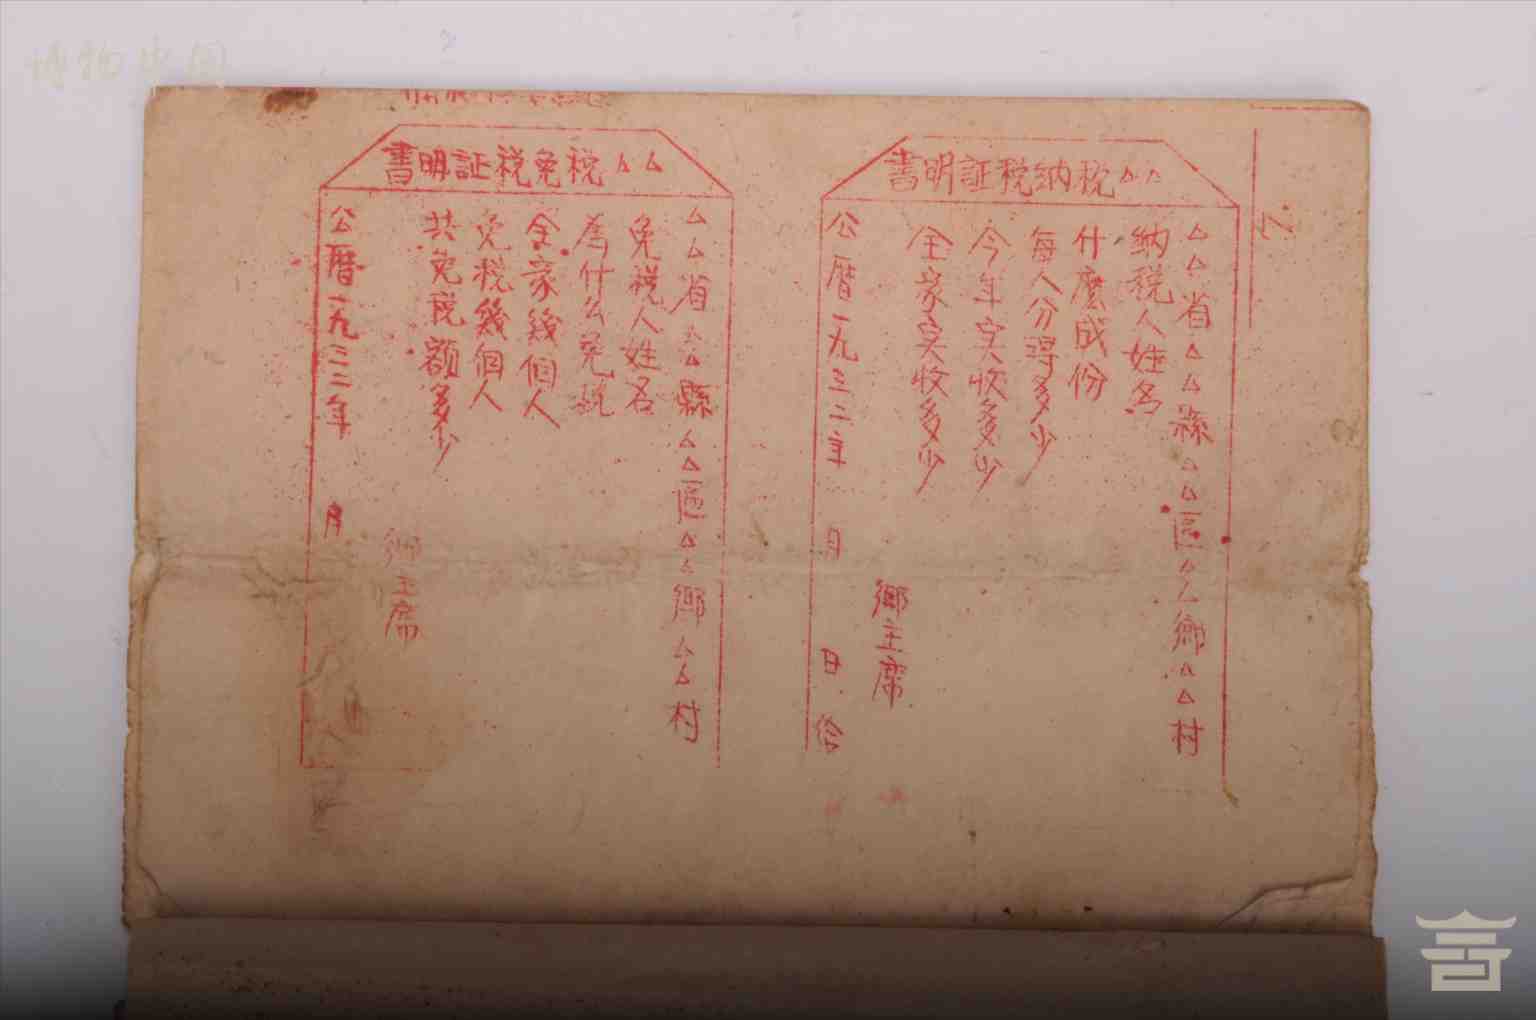 博物中国
△△税纳税証明書
△△省△△縣△△區△△鄉△△村
纳税人姓名
什麽成份
每人分得多少
今年实收多少
全家实收多少
鄉主席
公曆一九三二年 月 日 给
△△税免税証明書
△△省△△縣△△區△△鄉△△村
免税人姓名
為什么免税
全家幾個人
免税幾個人
共免税额多少
鄉主席
公曆一九三二年 月